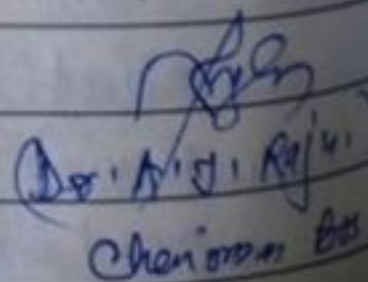 (Dr. A. J. Raju.
Chairman Bos